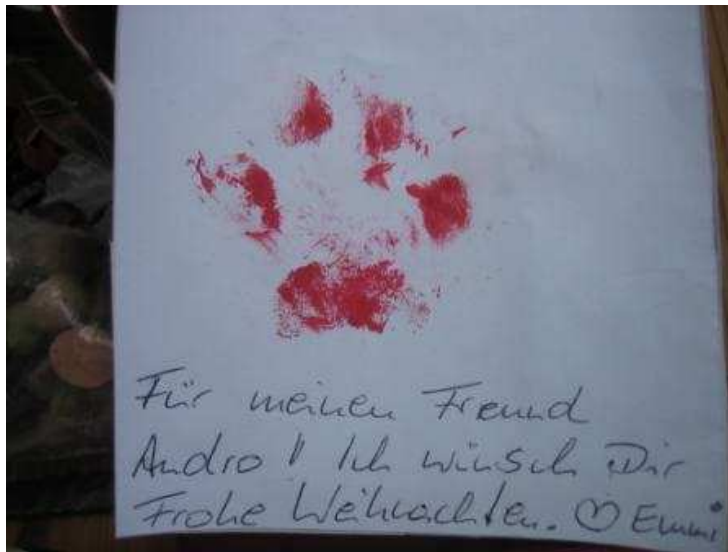 Für meinen Freund
Andro!! Ich wünsch Dir
Frohe Weihnachten. ♡ Emmi